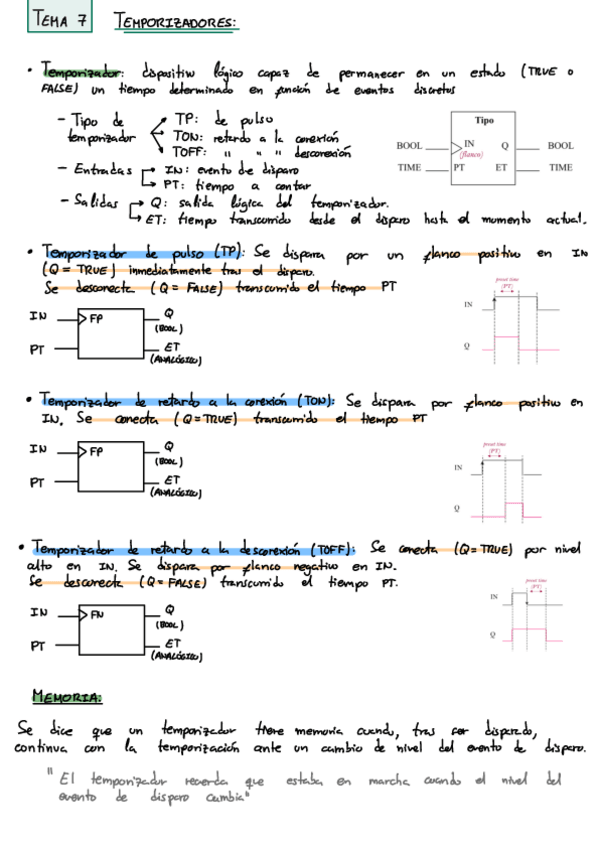 TEMA 7 TEMPORIZADORES:
• Temporizador: dispositivo lógico capaz de permanecer en un estado (TRUE o
FALSE) un tiempo determinado en función de eventos discretos
- Tipo de temporizador
TP: de pulso
TON: retardo a la conexión
TOFF: " " " desconexión
- Entradas
IN: evento de disparo
PT: tiempo a contar
- Salidas
Q: salida lógica del temporizador.
ET: tiempo transcurrido desde el disparo hasta el momento actual.
Tipo
BOOL IN Q BOOL
(flanco)
TIME PT ET TIME
• Temporizador de pulso (TP): Se dispara por un flanco positivo en IN
(Q = TRUE) inmediatamente tras el disparo.
Se desconecta (Q = FALSE) transcurrido el tiempo PT
IN FP Q
(BOOL)
PT ET
(ANALÓGICO)
preset time
(PT)
IN
Q
• Temporizador de retardo a la conexión (TON): Se dispara por flanco positivo en
IN. Se conecta (Q=TRUE) transcurrido el tiempo PT
IN FP Q
(BOOL)
PT ET
(ANALÓGICO)
preset time
(PT)
IN
Q
• Temporizador de retardo a la desconexión (TOFF): Se conecta (Q=TRUE) por nivel
alto en IN. Se dispara por flanco negativo en IN.
Se desconecta (Q=FALSE) transcurrido el tiempo PT.
IN FN Q
(BOOL)
PT ET
(ANALÓGICO)
preset time
(PT)
IN
Q
MEMORIA:
Se dice que un temporizador tiene memoria cuando, tras ser disparado,
continua con la temporización ante un cambio de nivel del evento de disparo.
"El temporizador recuerda que estaba en marcha cuando el nivel del
evento de disparo cambia"